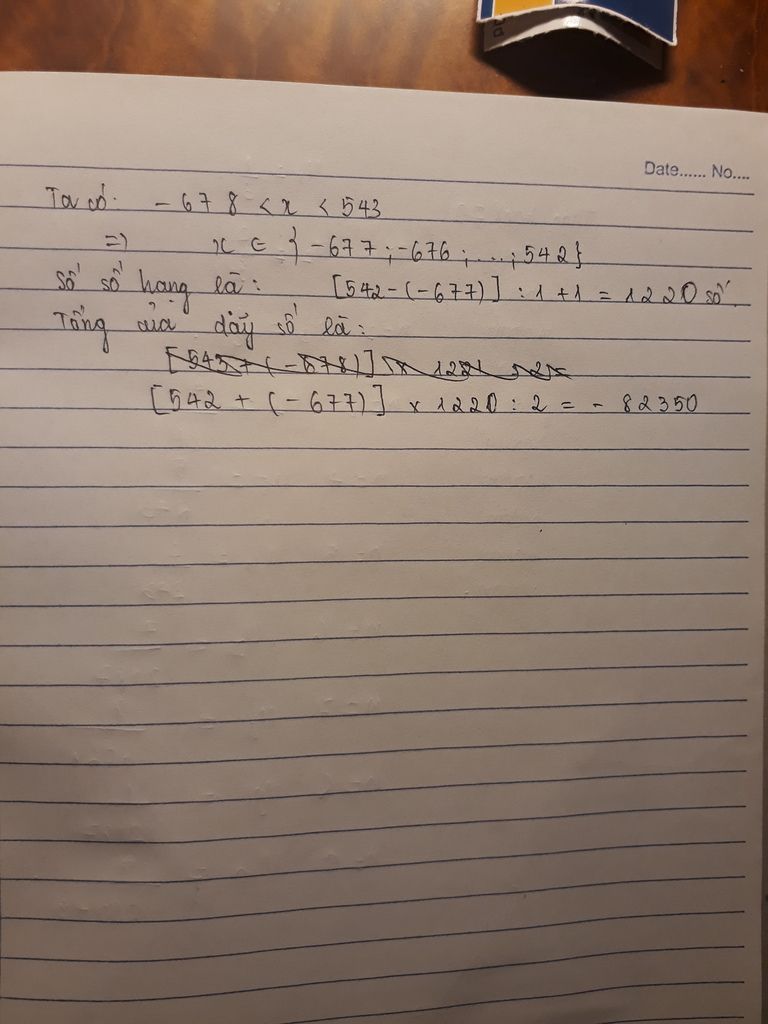 Date...... No....
Ta có: -678 < x < 543
=> x ∈ {-677; -676; ...; 542}
Số số hạng là: [542-(-677)] : 1 + 1 = 1220 số
Tổng của dãy số là:
[542 + (-677)] x 1220 : 2 = - 82350